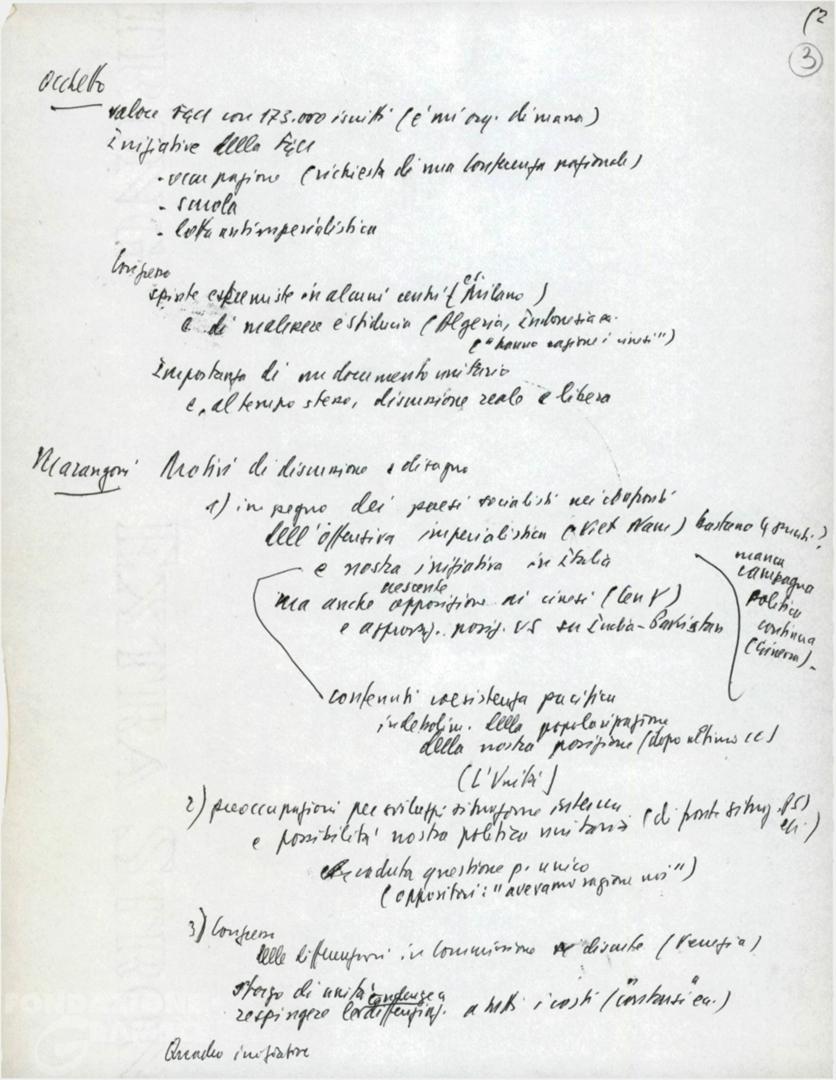 (2
3
Occhetto
valore FGCI con 173.000 iscritti (è un'org. di massa)
Iniziative della FGCI
- occupazione (richiesta di una Conferenza nazionale)
- scuola
- lotta antimperialistica
Congresso
spinte estremiste in alcuni centri (es. Milano)
e di malessere e sfiducia (Algeria, Indonesia ecc.
("hanno ragione i cinesi")
Importanza di un documento unitario
e, al tempo stesso, discussione reale e libera
Marangoni Motivi di discussione e disagio
1) impegno dei paesi socialisti nei confronti
dell'offensiva imperialistica (Viet Nam) bastano gli aiuti?)
e nostra iniziativa in Italia
manca
campagna
politica
continua
(Ginevra).
ma anche crescente opposizione ai cinesi (Cen V)
e approvaz. posiz. US su India-Pakistan
contenuti coesistenza pacifica
indebolim. della popolarizzazione
della nostra posizione (dopo ultimo CC)
(L'Unità)
2) preoccupazioni per sviluppi situazione interna
e possibilità nostra politica unitaria (di fronte situaz. PSI
caduta questione p. unico
(oppositori: "avevamo ragione noi")
3) Congresso
delle differenziaz. in Commissione discute (Venezia)
sforzo di unità
respingere tendenza a tutti i costi ("contarsi" ecc.)
Quadro iniziative